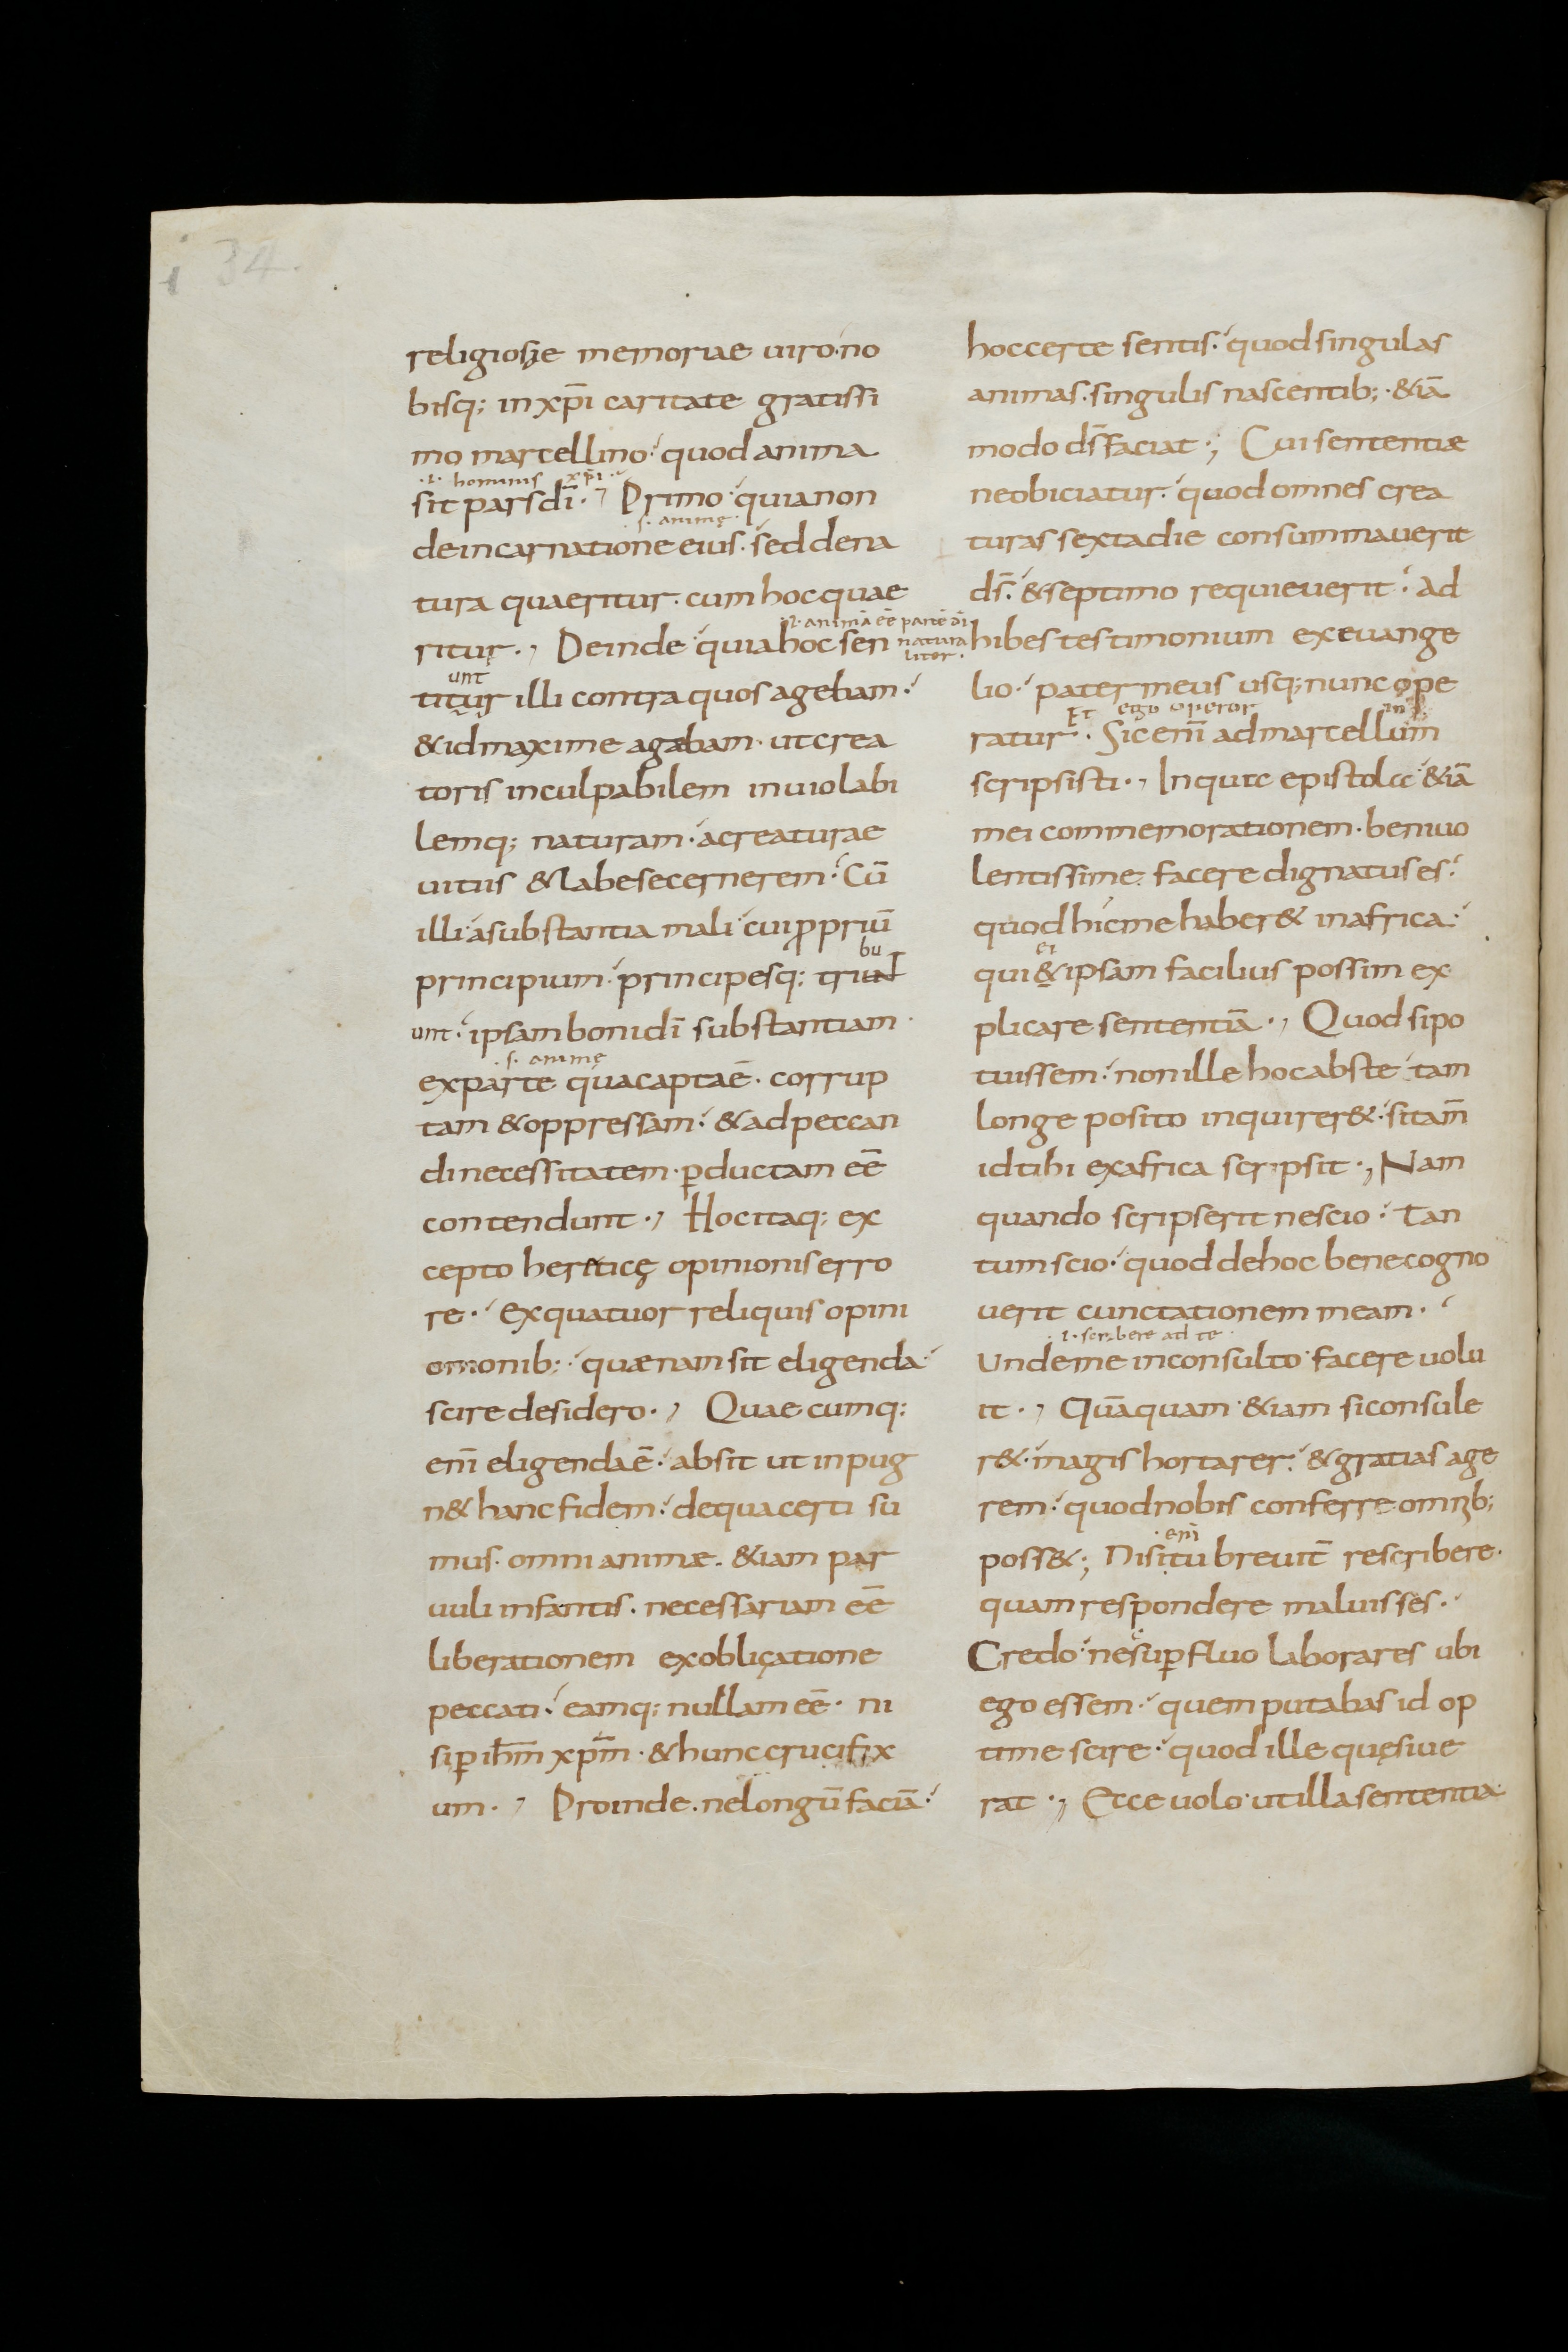 34.
religiosae memoriae uiro no
bisq; in xp̄i caritate gratissi
mo marcellino · quod anima
.i. hominis xp̄i
sit pars dī · , Primo · quia non
.s. animę
de incarnatione eius · sed de na
tura quaeritur · cum hoc quae
.i. animā eē parte dī natura liter.
ritur · , Deinde · quia hoc sen
unt
titur illi contra quos agebam ·
& id maxime agebam · ut crea
toris inculpabilem inuiolabi
lemq; naturam · a creaturae
uitiis & labe secernerem · Cū
illi a substantia mali · cui ꝓpriū
bu
principium · principesq; triu
unt · ipsam boni dī substantiam
.s. animę
ex parte qua capta ē · corrup
tam & oppressam · & ad peccan
di necessitatem · ꝑductam eē
contendunt · , Hoc itaq; ex
cepto hereticę opinionis erro
re · ex quatuor reliquis opini
omonib; · quaenam sit eligenda ·
scire desidero · , Quaecumq;
enī eligenda ē · absit ut inpug
n& hanc fidem · de qua certi su
mus · omni animæ · &iam par
uuli infantis · necessariam eē
liberationem ex obligatione
peccati · eamq; nullam eē · ni
si ꝑ ihm̄ xpm̄ · & hunc crucifix
um · , Proinde · ne longū faciā ·
hoc certe sentis · quod singulas
animas · singulis nascentib; · &iā
modo ds̄ faciat · ; Cui sententiæ
ne obiciatur · quod omnes crea
turas sexta die consummauerit
ds̄ · & septimo requieuerit · ad
hibes testimonium ex euange
lio · pater meus usq; nunc ope
Et ego operor
ratur · Sic enī ad marcellum
in
scripsisti · , In qua epistola &iā
mei commemorationem · beniuo
lentissime facere dignatus es ·
quod hic me haber& in africa ·
ei
qui & ipsam facilius possim ex
plicare sententiā · , Quod si po
tuissem · non ille hoc abs te tam
longe posito inquirer& · si tam̄
id tibi ex africa scripsit · , Nam
quando scripserit nescio · Tan
tum scio · quod de hoc bene cogno
uerit cunctationem meam ·
.i. scribere ad te ·
Unde me inconsulto facere uolu
it · , Quāquam · &iam si consule
r& · magis hortarer · & gratias age
rem · quod nobis conferre omnib;
enī
poss& ; Nisi tu breuit̄ rescribere ·
quam respondere maluisses ·
Credo · ne suꝑfluo laborares ubi
ego essem · quem putabas id op
time scire · quod ille quęsiue
rat · , Ecce uolo · ut illa sententia